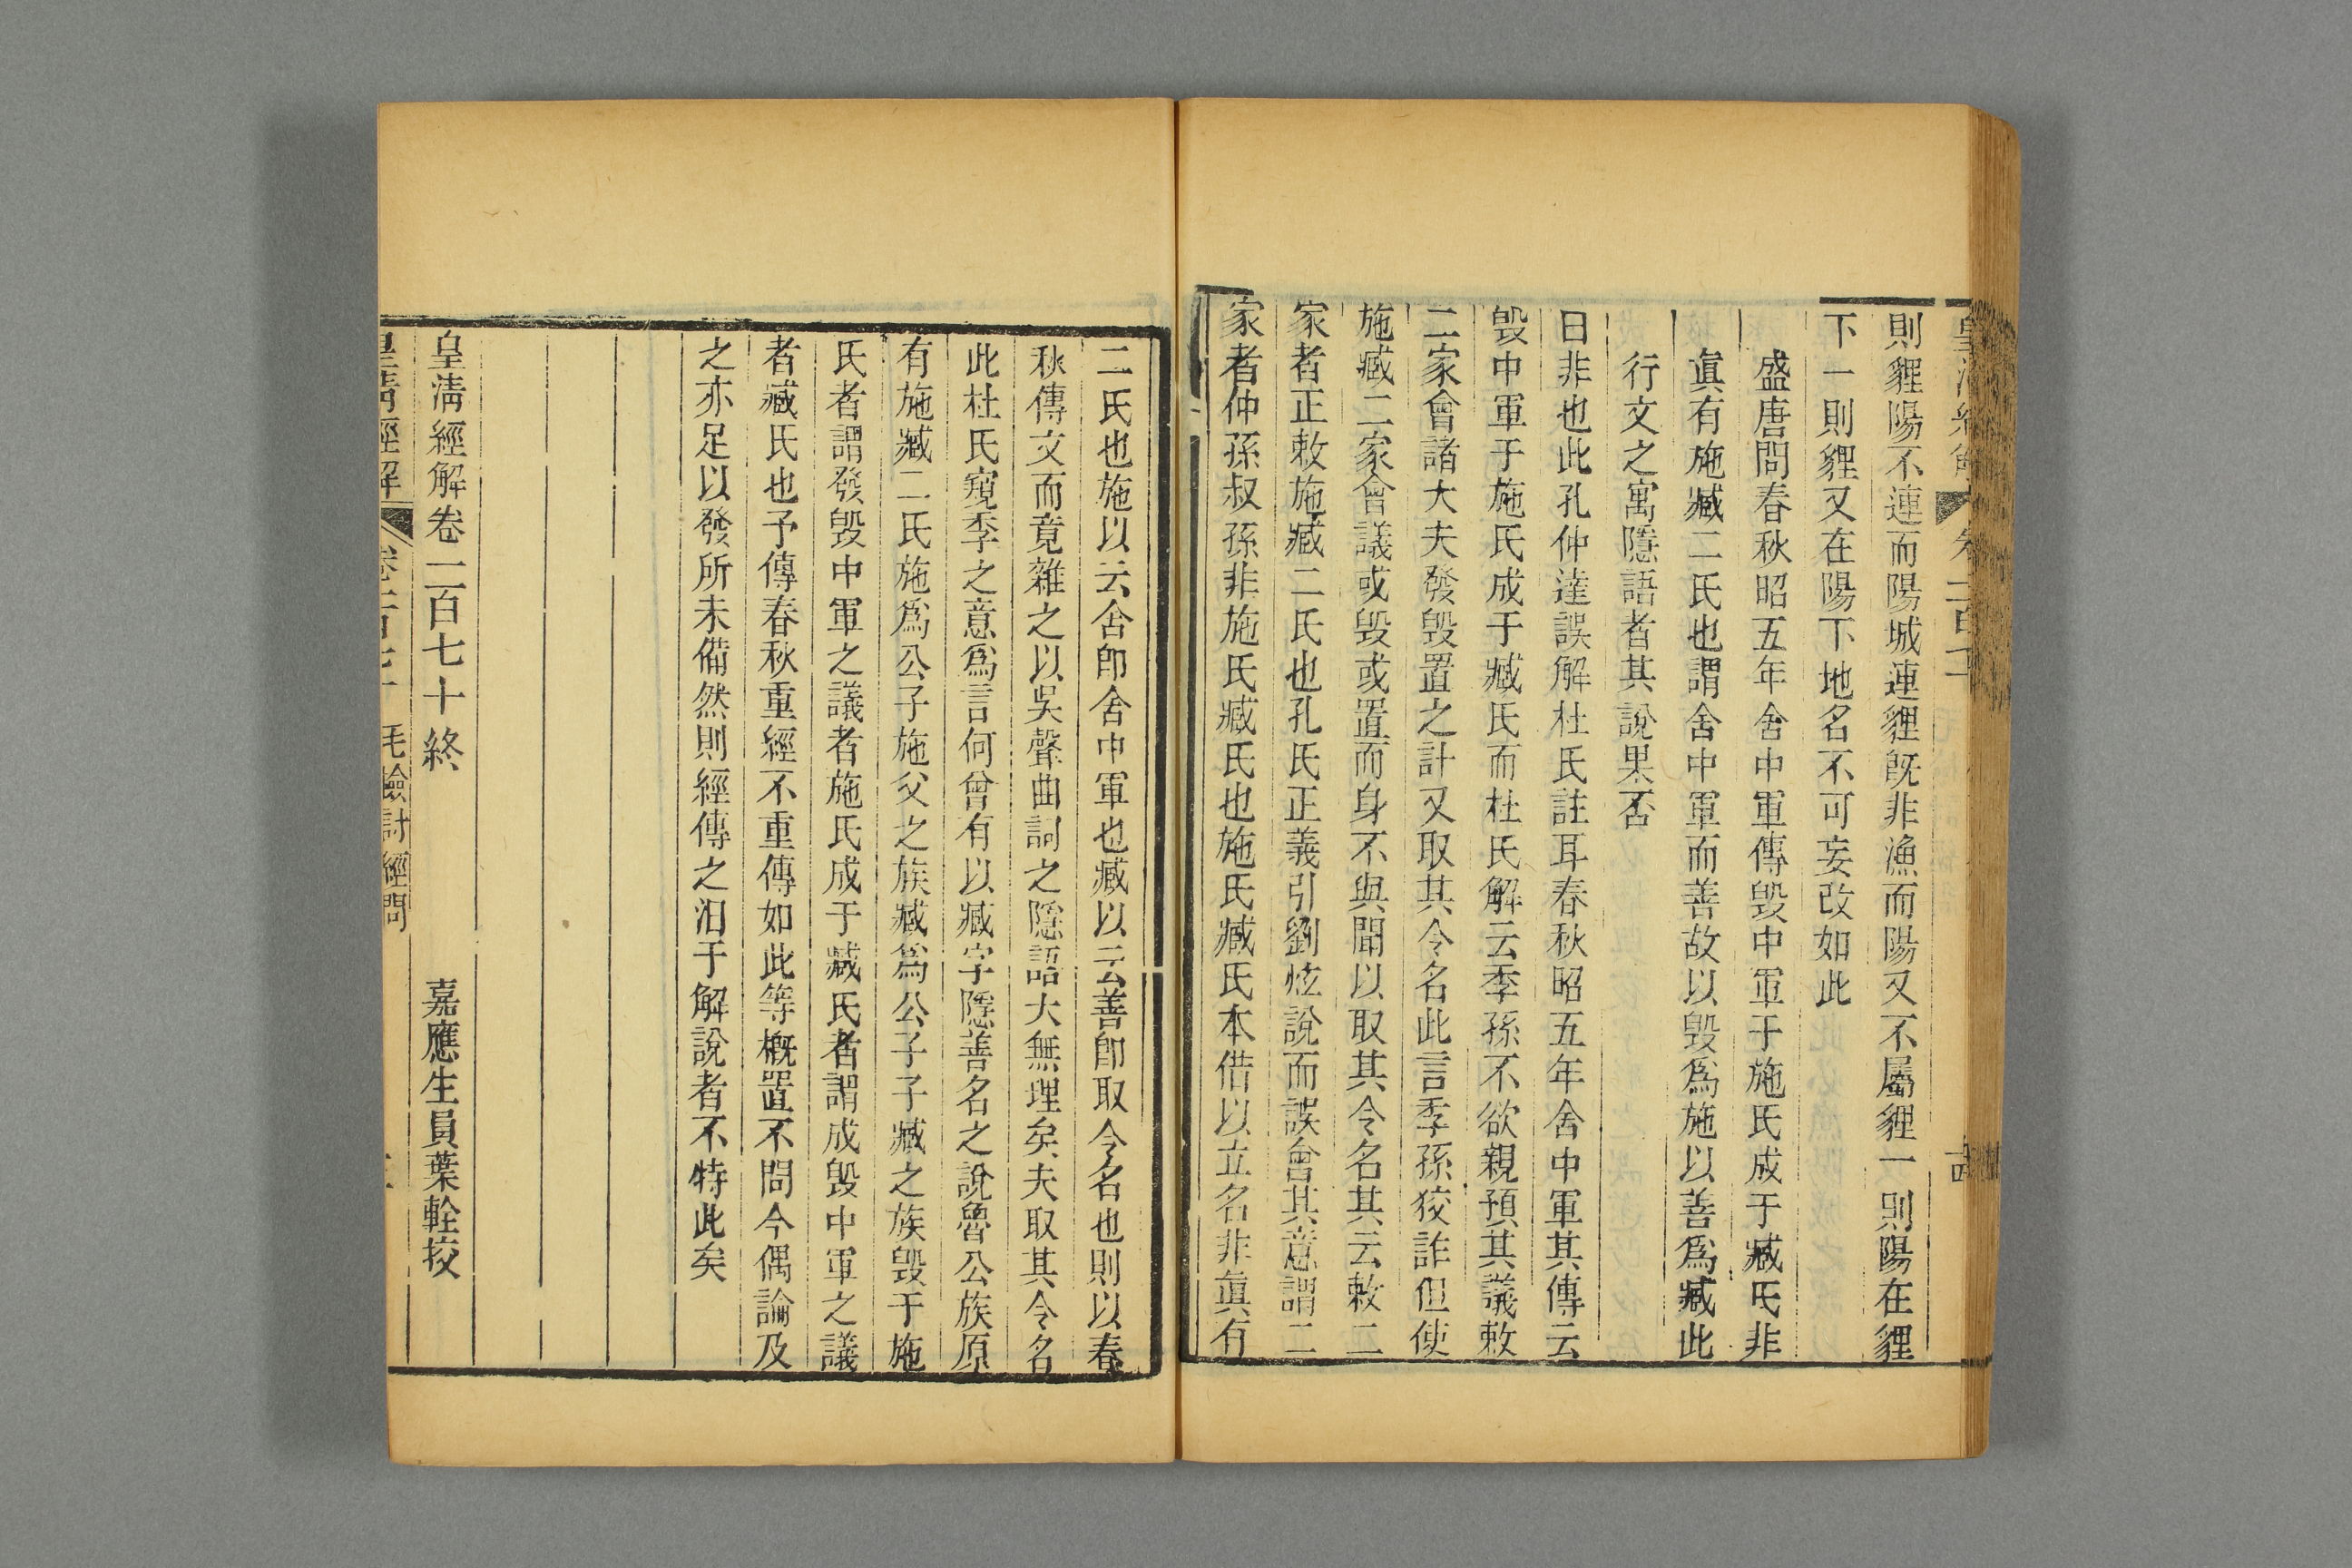 則貍陽不連而陽城連貍既非漁而陽又不屬貍一則陽在貍
下一則貍又在陽下地名不可妄改如此
盛唐問春秋昭五年舍中軍傳毀中軍于施氏成于臧氏非
眞有施臧二氏也謂舍中軍而善故以毀爲施以善爲臧此
行文之寓隱語者其說果否
曰非也此孔仲達誤解杜氏註耳春秋昭五年舍中軍其傳云
毀中軍于施氏成于臧氏而杜氏解云季孫不欲親預其議敕
二家會諸大夫發毀置之計又取其令名此言季孫狡詐但使
施臧二家會議或毀或置而身不與聞以取其令名其云敕二
家者正敕施臧二氏也孔氏正義引劉炫說而誤會其意謂二
家者仲孫叔孫非施氏臧氏也施氏臧氏本借以立名非眞有
二氏也施以云舍卽舍中軍也臧以云善卽取令名也則以春
秋傳文而竟雜之以吳聲曲詞之隱語大無理矣夫取其令名
此杜氏窺季之意爲言何曾有以臧字隱善名之說魯公族原
有施臧二氏施爲公子施父之族臧爲公子子臧之族毀于施
氏者謂發毀中軍之議者施氏成于臧氏者謂成毀中軍之議
者臧氏也予傳春秋重經不重傳如此等概置不問今偶論及
之亦足以發所未備然則經傳之汨于解說者不特此矣
皇淸經解卷二百七十終 嘉應生員葉輇挍
皇淸經解 卷二百七十 毛檢討經問